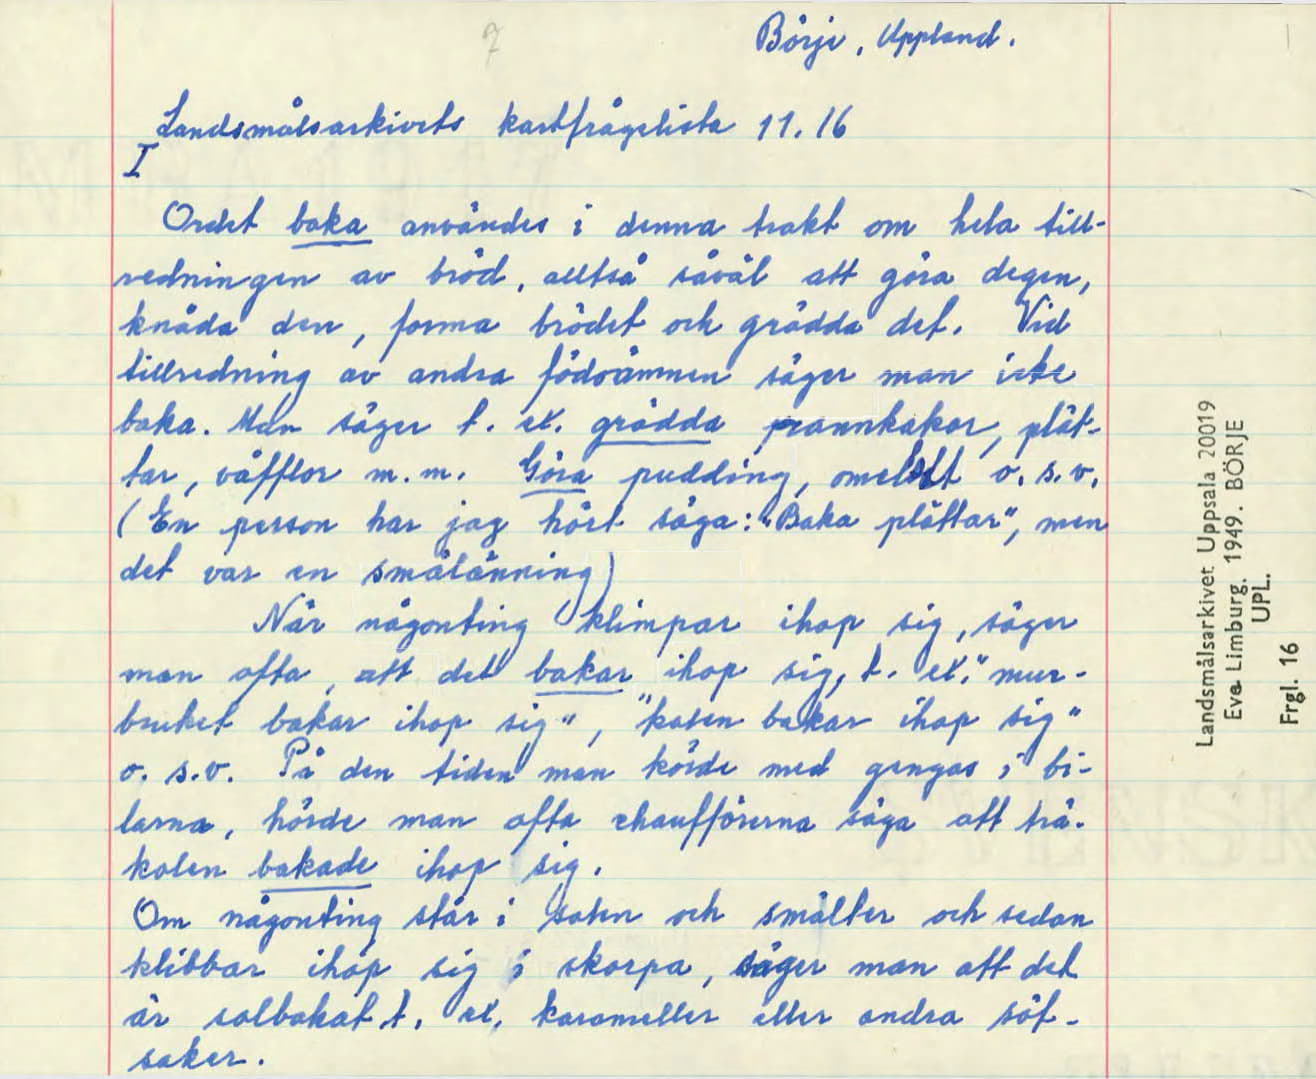 7
Börje, Uppland.
Landsmålsarkivets kartfrågelista 11. 16
I
Ordet baka användes i denna trakt om hela till-
redningen av bröd, alltså såväl att göra degen,
knåda den, forma brödet och grädda det. Vid
tillredning av andra födoämnen säger man icke
baka. Man säger t. ex. grädda pannkakor, plät-
tar, våfflor m. m. Göra pudding, omelett o. s. v.
(En person har jag hört säga: "Baka plättar", men
det var en smålänning)
När någonting klimpar ihop sig, säger
man ofta, att det bakar ihop sig, t. ex. "mur-
bruket bakar ihop sig", "kolen bakar ihop sig"
o. s. v. På den tiden man körde med gengas i bi-
larna, hörde man ofta chaufförerna säga att trä-
kolen bakade ihop sig.
Om någonting står i solen och smälter och sedan
klibbar ihop sig i skorpa, säger man att det
är solbakat t. ex. karameller eller andra söt-
saker.
Landsmålsarkivet Uppsala 20019
Eva Limburg. 1949. BÖRJE
UPL.
Frgl. 16